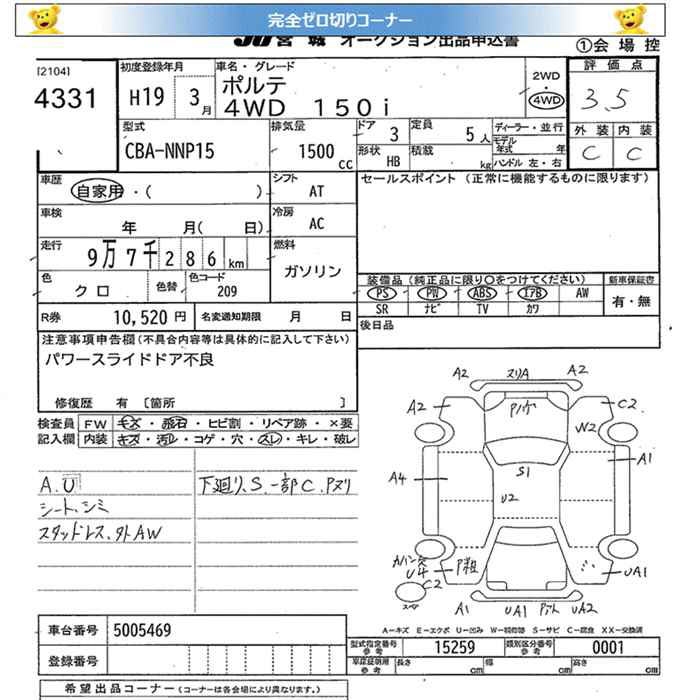 完全ゼロ切りコーナー
JU宮城 オークション出品申込書
①会場控
[2104]
4331
初度登録年月
H19 3月
車名・グレード
ポルテ
4WD 150i
2WD
・
4WD
評価点
3.5
外装 内装
C C
型式
CBA-NNP15
排気量
1500cc
ドア 3
定員 5人
形状 HB
積載 kg
ディーラー・並行
モデル年式 年
ハンドル 左・右
車歴
自家用・( )
シフト
AT
車検
年 月( 日)
冷房
AC
走行
9万7千286km
燃料
ガソリン
色
クロ
色替
色コード
209
R券 10,520円
名変通知期限 月 日
セールスポイント (正常に機能するものに限ります)
装備品(純正品に限り○をつけてください)
PS PW ABS エアB AW
SR ナビ TV カワ
新車保証書
有・無
後日品
注意事項申告欄(不具合内容等は具体的に記入して下さい)
パワースライドドア不良
修復歴 有 [箇所 ]
検査員記入欄
FW キズ・飛石・ヒビ割・リペア跡・×要
内装 キズ・汚レ・コゲ・穴・スレ・キレ・破レ
A.U
シート.シミ
スタッドレス.外AW
下廻り.S.一部C.Pヌリ
A2 スリA A2
A2 Pハゲ C2
W2
A4 S1 A1
U2
U4 P粗
C2
スペア
UA1
A1 UA1 UA2
A-キズ E-エクボ U-凹み W-補修跡 S-サビ C-腐食 XX-交換済
車台番号 5005469
登録番号
型式指定番号 参考 15259
類別区分番号 参考 0001
車庫証明用 参考 長さ cm 幅 cm 高さ cm
希望出品コーナー(コーナーは各会場により異なります。)